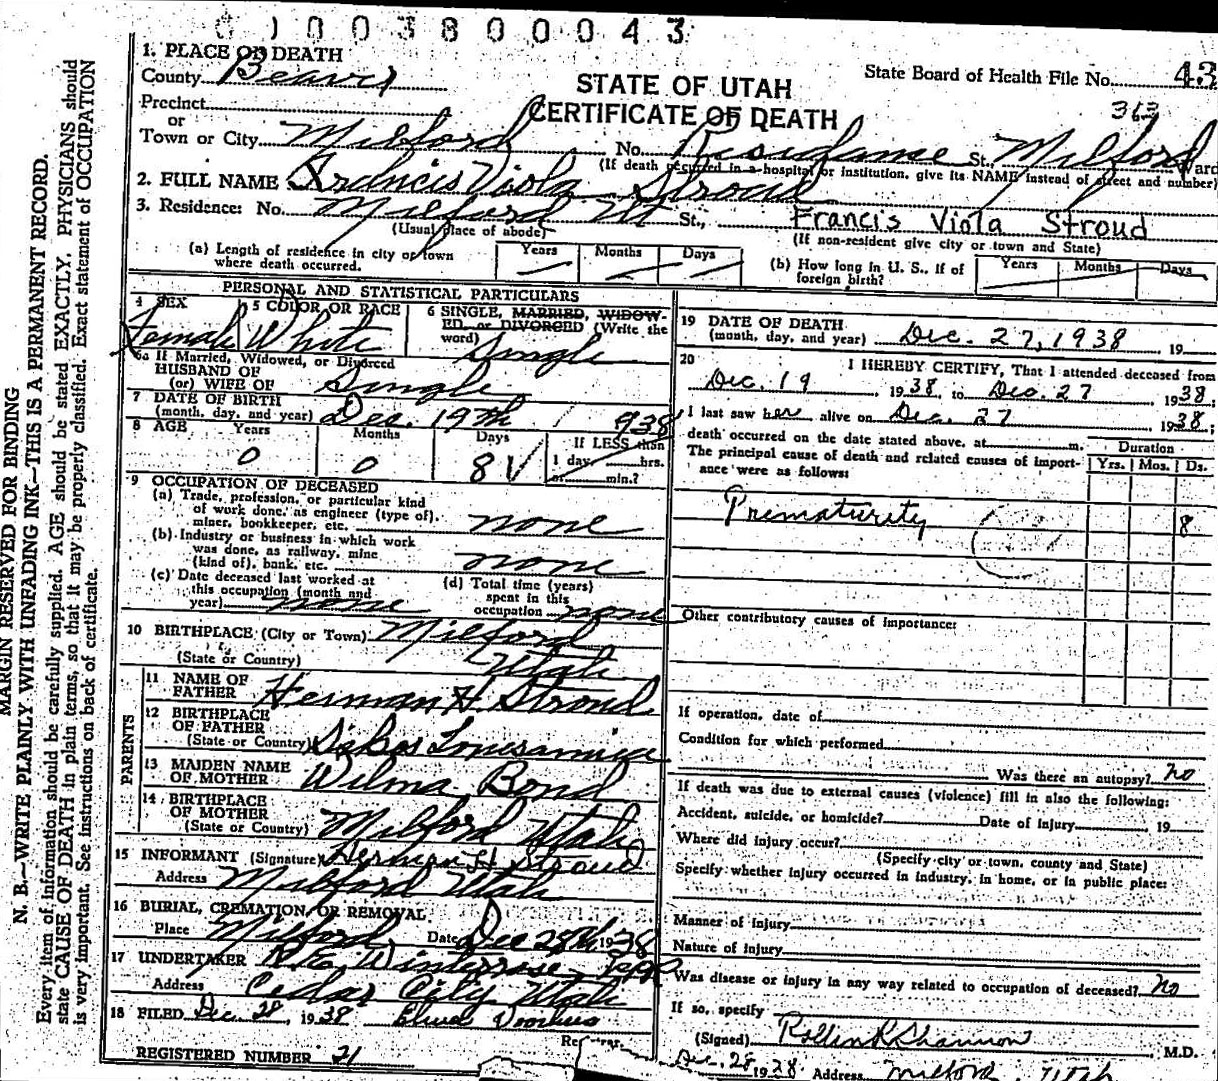 0 1 0 0 3 8 0 0 0 4 3
1. PLACE OF DEATH
County Beaver
STATE OF UTAH
CERTIFICATE OF DEATH
State Board of Health File No. 43
363
Precinct
or
Town or City Milford No. Residance St., Milford Ward
(If death occurred in a hospital or institution, give its NAME instead of street and number)
2. FULL NAME Francis Viola Stroud
3. Residence: No. Milford Ut St., Francis Viola Stroud
(Usual place of abode) (If non-resident give city or town and State)
(a) Length of residence in city or town where death occurred. Years Months Days
(b) How long in U. S., if of foreign birth? Years Months Days
PERSONAL AND STATISTICAL PARTICULARS
4 SEX Female
5 COLOR OR RACE White
6 SINGLE, MARRIED, WIDOWED, or DIVORCED (Write the word) Single
6a If Married, Widowed, or Divorced
HUSBAND OF
(or) WIFE OF Single
7 DATE OF BIRTH
(month, day, and year) Dec. 19th 1938
8 AGE Years Months Days If LESS than
0 0 8 1 day, hrs.
or min.?
9 OCCUPATION OF DECEASED
(a) Trade, profession, or particular kind
of work done, as engineer (type of),
miner, bookkeeper, etc. none
(b) Industry or business in which work
was done, as railway, mine
(kind of), bank, etc. none
(c) Date deceased last worked at
this occupation (month and
year) none
(d) Total time (years)
spent in this
occupation none
10 BIRTHPLACE (City or Town) Milford
(State or Country) Utah
PARENTS
11 NAME OF
FATHER Herman H. Stroud
12 BIRTHPLACE
OF FATHER
(State or Country)
13 MAIDEN NAME
OF MOTHER Wilma Bond
14 BIRTHPLACE
OF MOTHER
(State or Country) Milford Utah
15 INFORMANT (Signature) Herman H Stroud
Address Milford Utah
16 BURIAL, CREMATION, OR REMOVAL
Place Milford Date Dec 28th 1938
17 UNDERTAKER
Address Cedar City Utah
18 FILED Dec. 28, 1938
Registrar.
REGISTERED NUMBER 21
19 DATE OF DEATH
(month, day, and year) Dec. 27, 1938, 19
20 I HEREBY CERTIFY, That I attended deceased from
Dec. 19, 1938, to Dec. 27 1938;
I last saw her alive on Dec. 27 1938;
death occurred on the date stated above, at m.
The principal cause of death and related causes of importance were as follows:
Duration
Yrs. Mos. Ds.
Prematurity 8
Other contributory causes of importance:
If operation, date of
Condition for which performed
Was there an autopsy? no
If death was due to external causes (violence) fill in also the following:
Accident, suicide, or homicide? Date of injury 19
Where did injury occur?
(Specify city or town, county and State)
Specify whether injury occurred in industry, in home, or in public place:
Manner of injury
Nature of injury
Was disease or injury in any way related to occupation of deceased? no
If so, specify
(Signed) Rollin R Shannon M.D.
Dec. 28 1938 Address Milford Utah
MARGIN RESERVED FOR BINDING
N. B.—WRITE PLAINLY WITH UNFADING INK—THIS IS A PERMANENT RECORD.
Every item of information should be carefully supplied. AGE should be stated EXACTLY. PHYSICIANS should
state CAUSE OF DEATH in plain terms, so that it may be properly classified. Exact statement of OCCUPATION
is very important. See instructions on back of certificate.